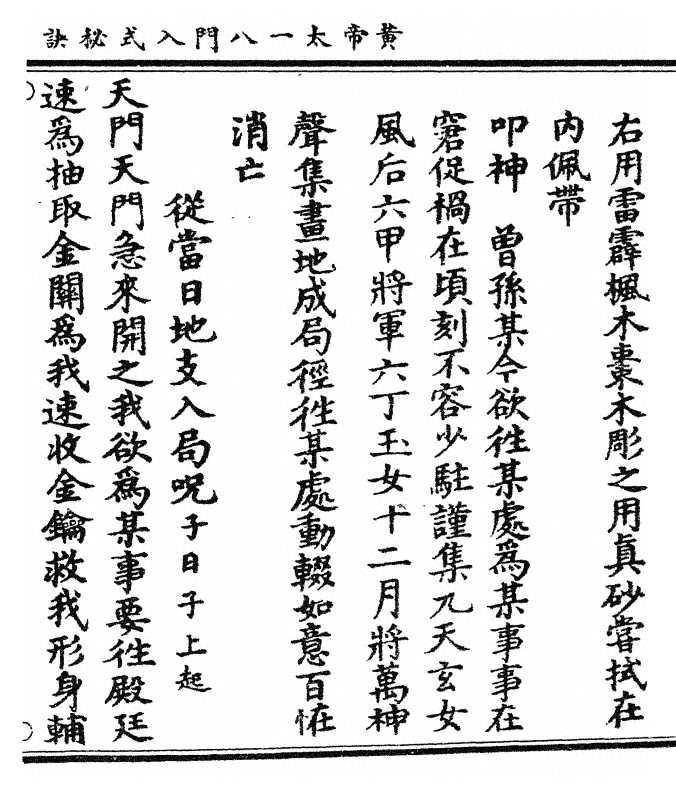 黃帝太一八門入式秘訣
右用雷霹楓木棗木彫之用眞砂嘗拭在
內佩帶
叩神　曾孫某今欲徃某處爲某事事在
窘促禍在頃刻不容少駐謹集九天玄女
風后六甲將軍六丁玉女十二月將萬神
聲集畫地成局徑徃某處動輟如意百怪
消亡
從當日地支入局呪子日子上起
天門天門急來開之我欲爲某事要徃殿廷
速爲抽取金關爲我速收金鑰救我形身輔